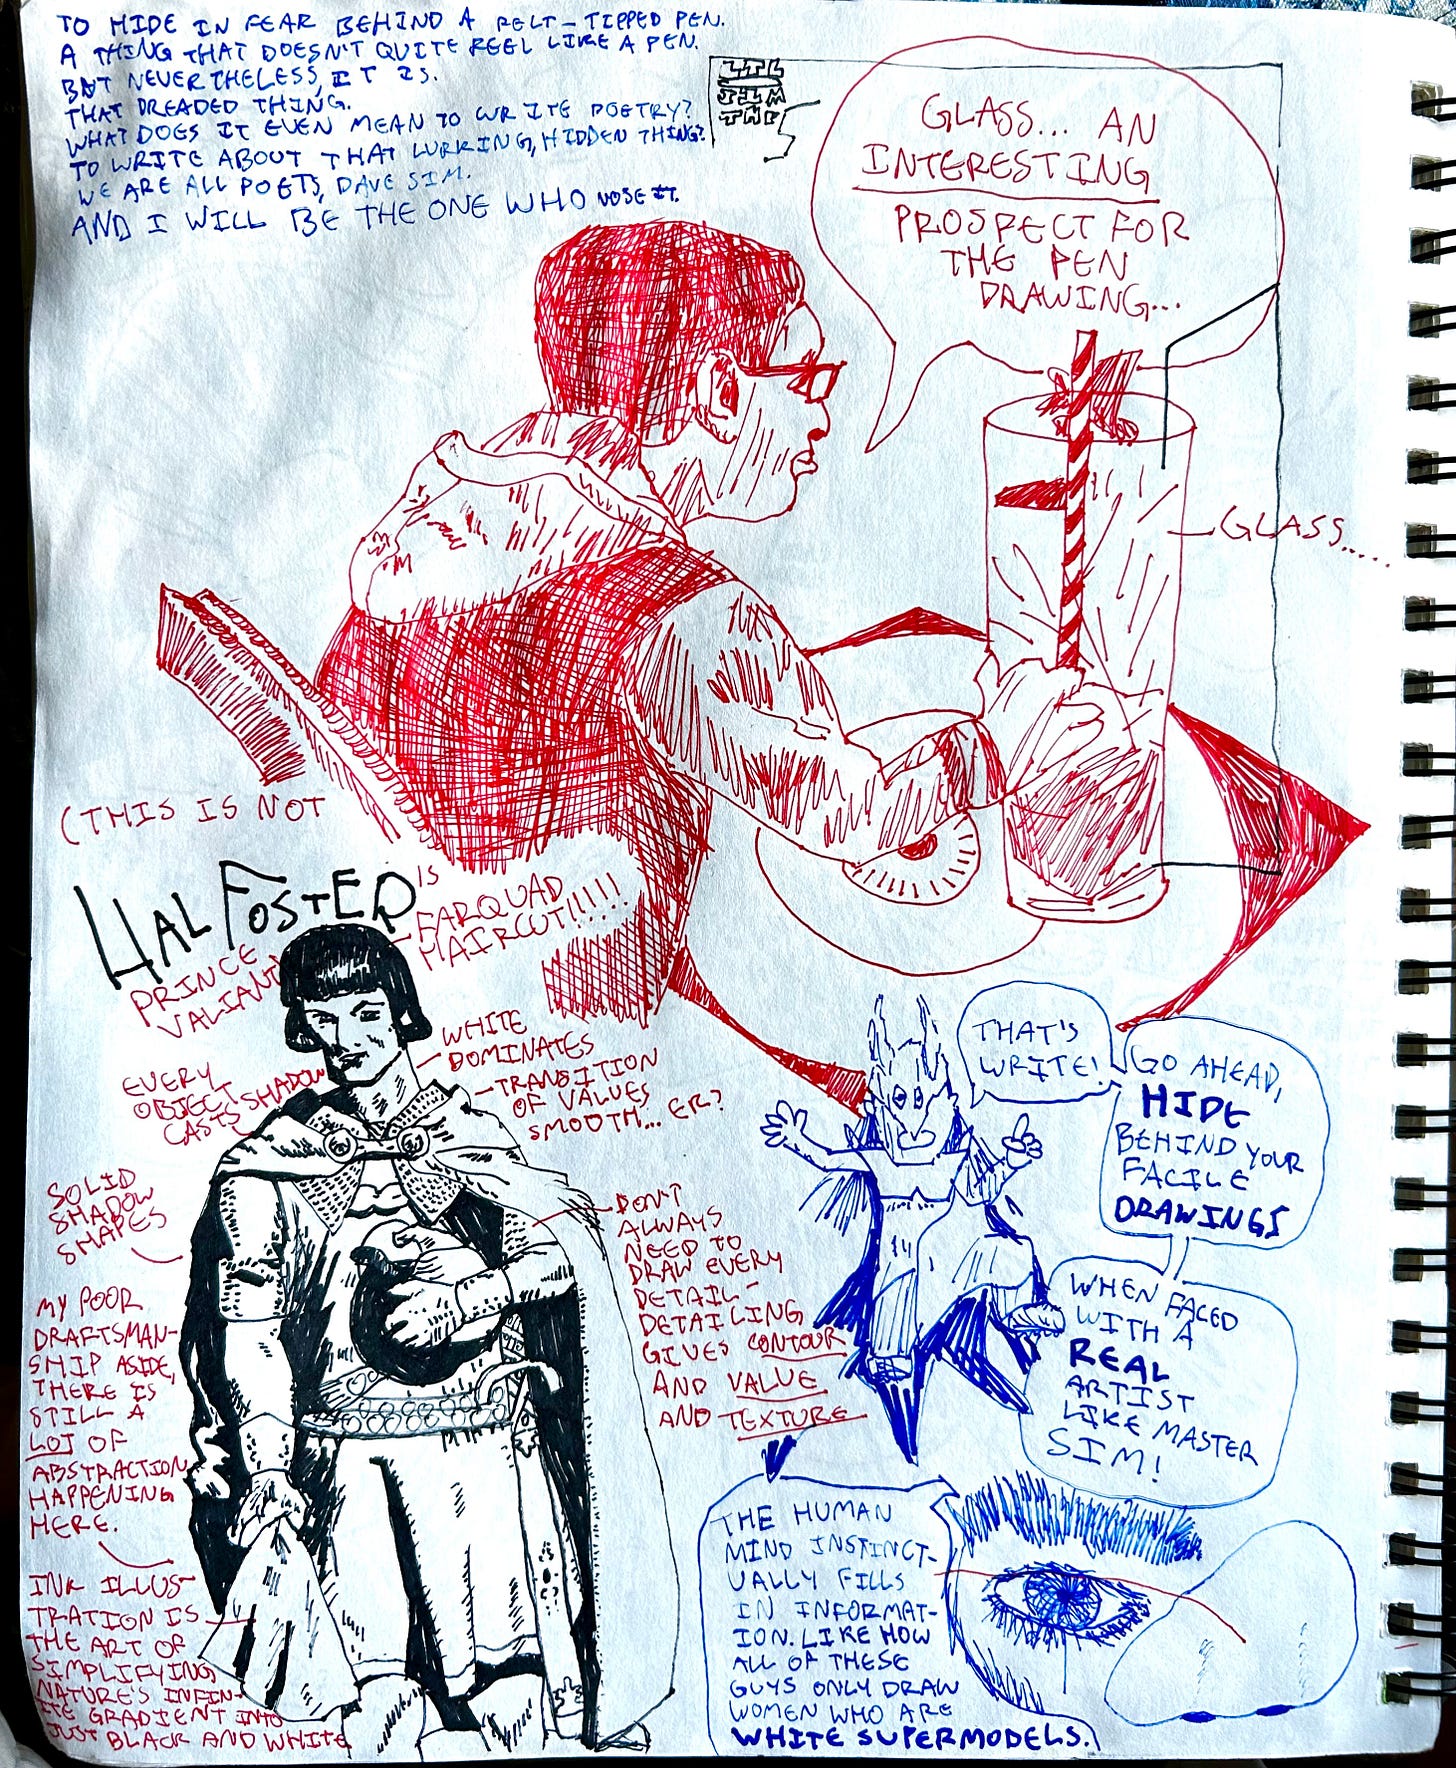 TO HIDE IN FEAR BEHIND A FELT-TIPPED PEN.
A THING THAT DOESN'T QUITE FEEL LIKE A PEN.
BUT NEVERTHELESS, IT IS.
THAT DREADED THING.
WHAT DOES IT EVEN MEAN TO WRITE POETRY?
TO WRITE ABOUT THAT LURKING, HIDDEN THING?
WE ARE ALL POETS, DAVE SIM.
AND I WILL BE THE ONE WHO
GLASS... AN
INTERESTING
PROSPECT FOR
THE PEN
DRAWING...
GLASS.....
(THIS IS NOT
HAL FOSTER
PRINCE
VALIANT
IS
FARQUAD
HAIRCUT!!!!!
WHITE
DOMINATES
TRANSITION
OF VALUES
SMOOTH... ER?
EVERY
OBJECT
CASTS SHADOW
SOLID
SHADOW
SHAPES
MY POOR
DRAFTSMAN-
SHIP ASIDE,
THERE IS
STILL A
LOT OF
ABSTRACTION
HAPPENING
HERE.
INK ILLUS-
TRATION IS
THE ART OF
SIMPLIFYING
NATURES INFIN-
ITE GRADIENT INTO
JUST BLACK AND WHITE
DON'T
ALWAYS
NEED TO
DRAW EVERY
DETAIL -
DETAILING
GIVES CONTOUR
AND VALUE
AND TEXTURE
THAT'S
WRITE!
GO AHEAD,
HIDE
BEHIND YOUR
FACILE
DRAWINGS
WHEN FACED
WITH A
REAL
ARTIST
LIKE MASTER
SIM!
THE HUMAN
MIND INSTINCT-
UALLY FILLS
IN INFORMAT-
ION. LIKE HOW
ALL OF THESE
GUYS ONLY DRAW
WOMEN WHO ARE
WHITE SUPERMODELS.